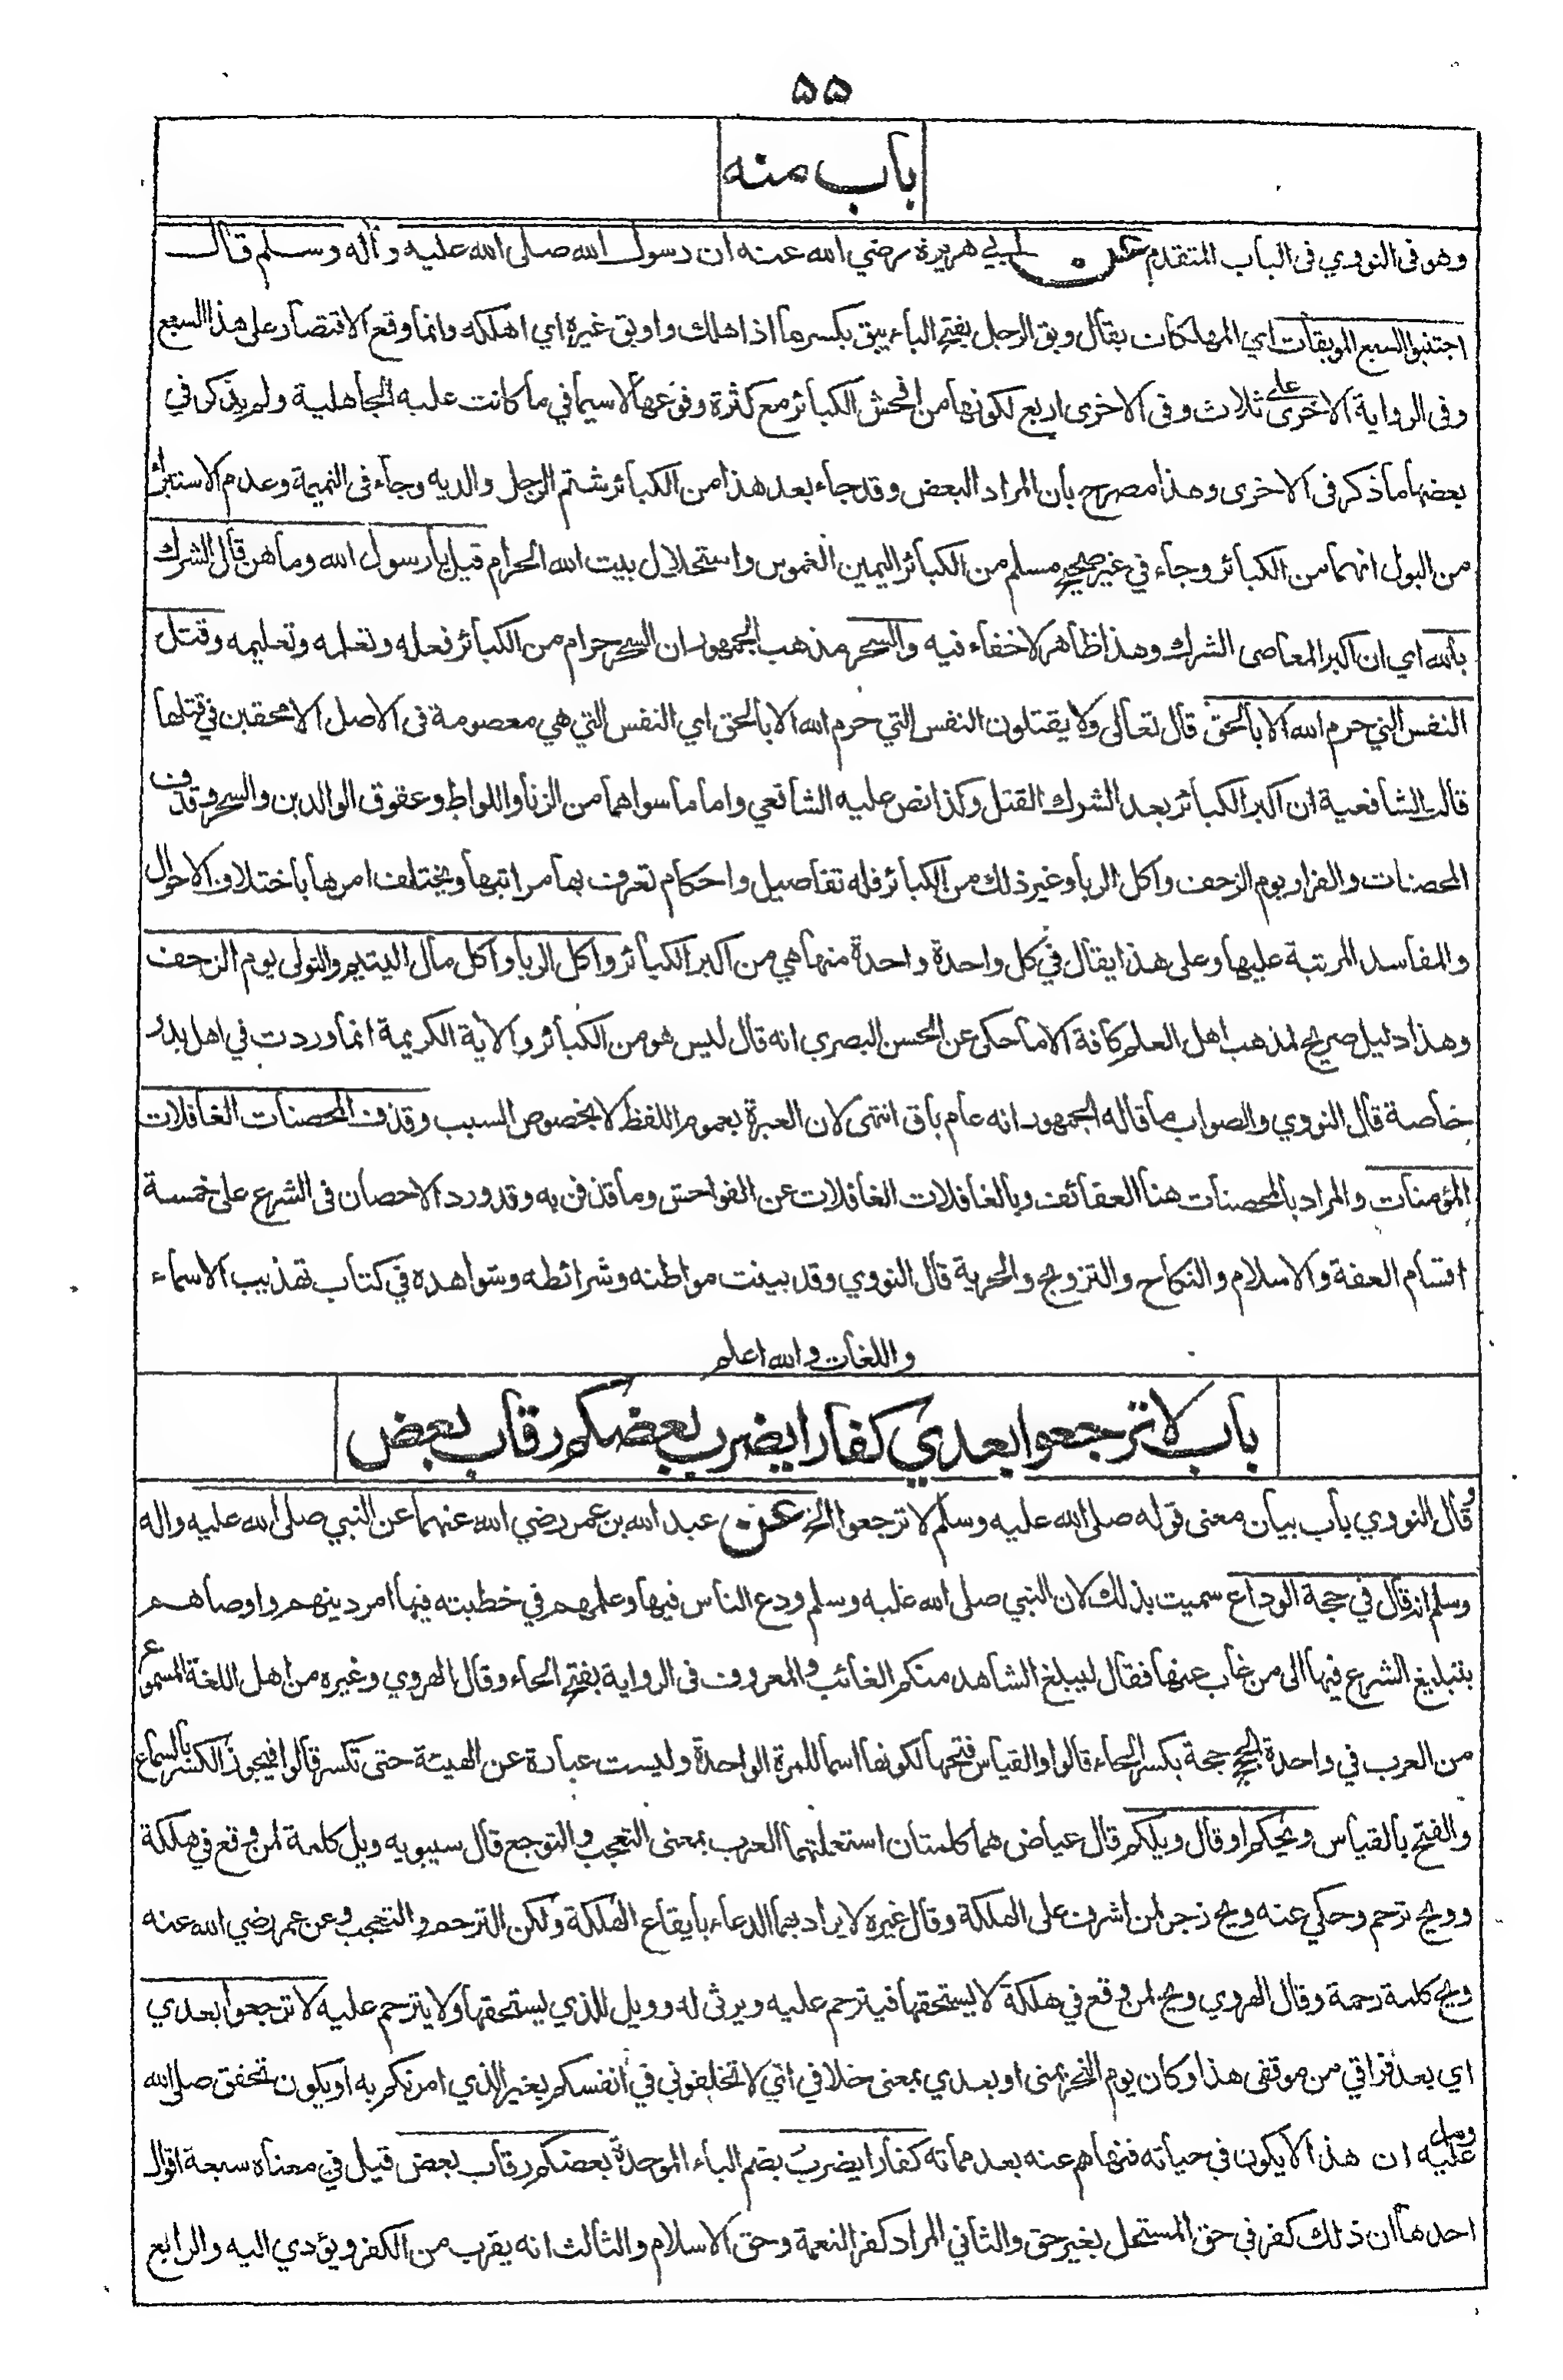 ۵۵
باب منه
وهو فى النووي فى الباب المتقدم عن ابي هريرة رضي الله عنه ان رسول الله صلى الله عليه وآله وسلم قال
اجتنبوا السبع الموبقات اي المهلكات يقال وبق الرجل بفتح الباء يبق بكسرها اذا هلك واوبق غيره اي اهلكه وانما وقع الاقتصار على هذا السبع
وفى الرواية الاخرى على ثلاث وفى الاخرى اربع لكونها من افحش الكبائر مع كثرة وقوعها لاسيما في ما كانت عليه الجاهلية ولم يذكر في
بعضها ما ذكر فى الاخرى وهذا مصرح بان المراد البعض وقد جاء بعد هذا من الكبائر شتم الرجل والديه وجاء فى النميمة وعدم الاستبراء
من البول انهما من الكبائر وجاء في غير صحيح مسلم من الكبائر اليمين الغموس واستحلال بيت الله الحرام قيل يا رسول الله وما هن قال الشرك
بالله اي ان اكبر المعاصى الشرك وهذا ظاهر لا خفاء فيه والسحر مذهب الجمهور ان السحر حرام من الكبائر فعله وتعلمه وتعليمه وقتل
النفس التي حرم الله الا بالحق قال تعالى ولا يقتلون النفس التي حرم الله الا بالحق اي النفس التي هي معصومة فى الاصل الا محقين في قتلها
قالت الشافعية ان اكبر الكبائر بعد الشرك القتل وكذا نص عليه الشافعي واما ما سواهما من الزنا واللواط وعقوق الوالدين والسحر وقذف
المحصنات والفرار يوم الزحف واكل الربا وغير ذلك من الكبائر فله تفاصيل واحكام تعرف بها مراتبها ويختلف امرها باختلاف الاحوال
والمفاسد المرتبة عليها وعلى هذا يقال في كل واحدة واحدة منها هي من اكبر الكبائر واكل الربا واكل مال اليتيم والتولى يوم الزحف
وهذا دليل صريح لمذهب اهل العلم كافة الا ما حكى عن الحسن البصري انه قال ليس هو من الكبائر والاية الكريمة انما وردت في اهل بدر
خاصة قال النووي والصواب ما قاله الجمهور انه عام باق انتهى لان العبرة بعموم اللفظ لا بخصوص السبب وقذف المحصنات الغافلات
المؤمنات والمراد بالمحصنات هنا العفائف وبالغافلات الغافلات عن الفواحش وما قذفن به وقد ورد الاحصان فى الشرع على خمسة
اقسام العفة والاسلام والنكاح والتزويج والحرية قال النووي وقد بينت مواطنه وشرائطه وشواهده في كتاب تهذيب الاسماء
واللغات والله اعلم
باب لا ترجعوا بعدي كفارا يضرب بعضكم رقاب بعض
وقال النووي باب بيان معنى قوله صلى الله عليه وسلم لا ترجعوا الخ عن عبد الله بن عمر رضي الله عنهما عن النبي صلى الله عليه واله
وسلم انه قال في حجة الوداع سميت بذلك لان النبي صلى الله عليه وسلم ودع الناس فيها وعلمهم في خطبته فيها امر دينهم واوصاهم
بتبليغ الشرع فيها الى من غاب عنها فقال ليبلغ الشاهد منكم الغائب والمعروف فى الرواية بفتح الحاء وقال الهروي وغيره من اهل اللغة المسموع
من العرب في واحدة الحج حجة بكسر الحاء قالوا والقياس فتحها لكونها اسما للمرة الواحدة وليست عبارة عن الهيئة حتى تكسر قالوا فيجوز الكسر بالسماع
والفتح بالقياس ويحكم او قال ويلكم قال عياض هما كلمتان استعملتهما العرب بمعنى التعجب والتوجع قال سيبويه ويل كلمة لمن وقع في هلكة
وويح ترحم وحكي عنه ويح زجر لمن اشرف على الهلكة وقال غيره لا يراد بهما الدعاء بايقاع الهلكة ولكن الترحم والتعجب وعن عمر رضي الله عنه
ويح كلمة رحمة وقال الهروي ويح لمن وقع في هلكة لا يستحقها فيترحم عليه ويرثى له وويل للذي يستحقها ولا يترحم عليه لا ترجعوا بعدي
اي بعد فراقي من موقفى هذا وكان يوم النحر بمنى او بعدي بمعنى خلافي اي لا تخلفوني في انفسكم بغير الذي امرتكم به او يكون تحقق صلى الله
عليه وسلم ان هذا لا يكون في حياته فنهاهم عنه بعد مماته كفارا يضرب بضم الباء الموحدة بعضكم رقاب بعض قيل في معناه سبعة اقوال
احدها ان ذلك كفر في حق المستحل بغير حق والثاني المراد كفر النعمة وحق الاسلام والثالث انه يقرب من الكفر ويؤدي اليه والرابع